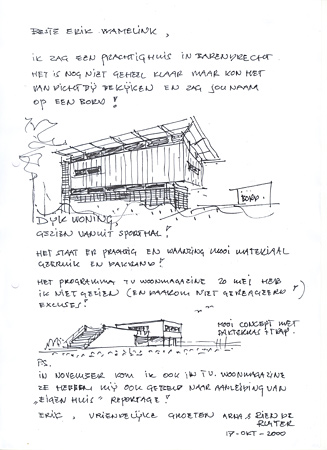 BESTE ERIK WAMELINK,
IK ZAG EEN PRACHTIG HUIS IN BARENDRECHT
HET IS NOG NIET GEHEEL KLAAR MAAR KON HET
VAN DICHTBIJ BEKIJKEN EN ZAG JOU NAAM
OP EEN BORD!
BORD.
DIJK WONING,
GEZIEN VANUIT SPORTHAL!
HET STAAT ER PRACHTIG EN WAANZINNIG MOOI MATERIAAL
GEBRUIK EN DAKRAND!
HET PROGRAMMA TV WOONMAGAZINE 20 MEI HEB
IK NIET GEZIEN (EN DAAROM NIET GEREAGEERD!)
EXCUSES!
MOOI CONCEPT MET
DAKTERRAS + TRAP.
PS.
IN NOVEMBER KOM IK OOK IN TV. WOONMAGAZINE
ZE HEBBEN MIJ OOK GEBELD NAAR AANLEIDING VAN
"EIGEN HUIS" REPORTAGE!
ERIK, VRIENDELIJKE GROETEN RIEN DE
RUITER
17-OKT-2000